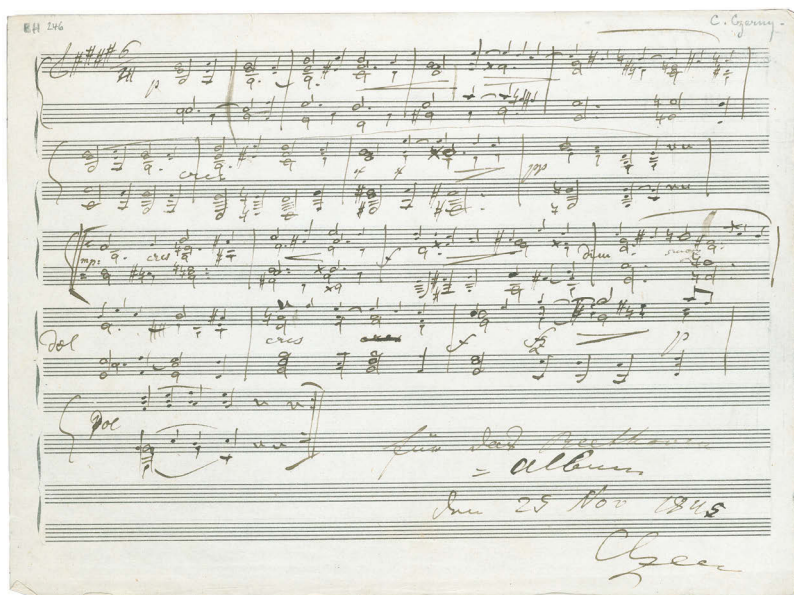 BH 246
C. Czerny.
p
cres
pp
mp:
cres
f
dim
dol
cres
f
p
Dol
für das Beethoven
= album
den 25 Nov 1845
Czern